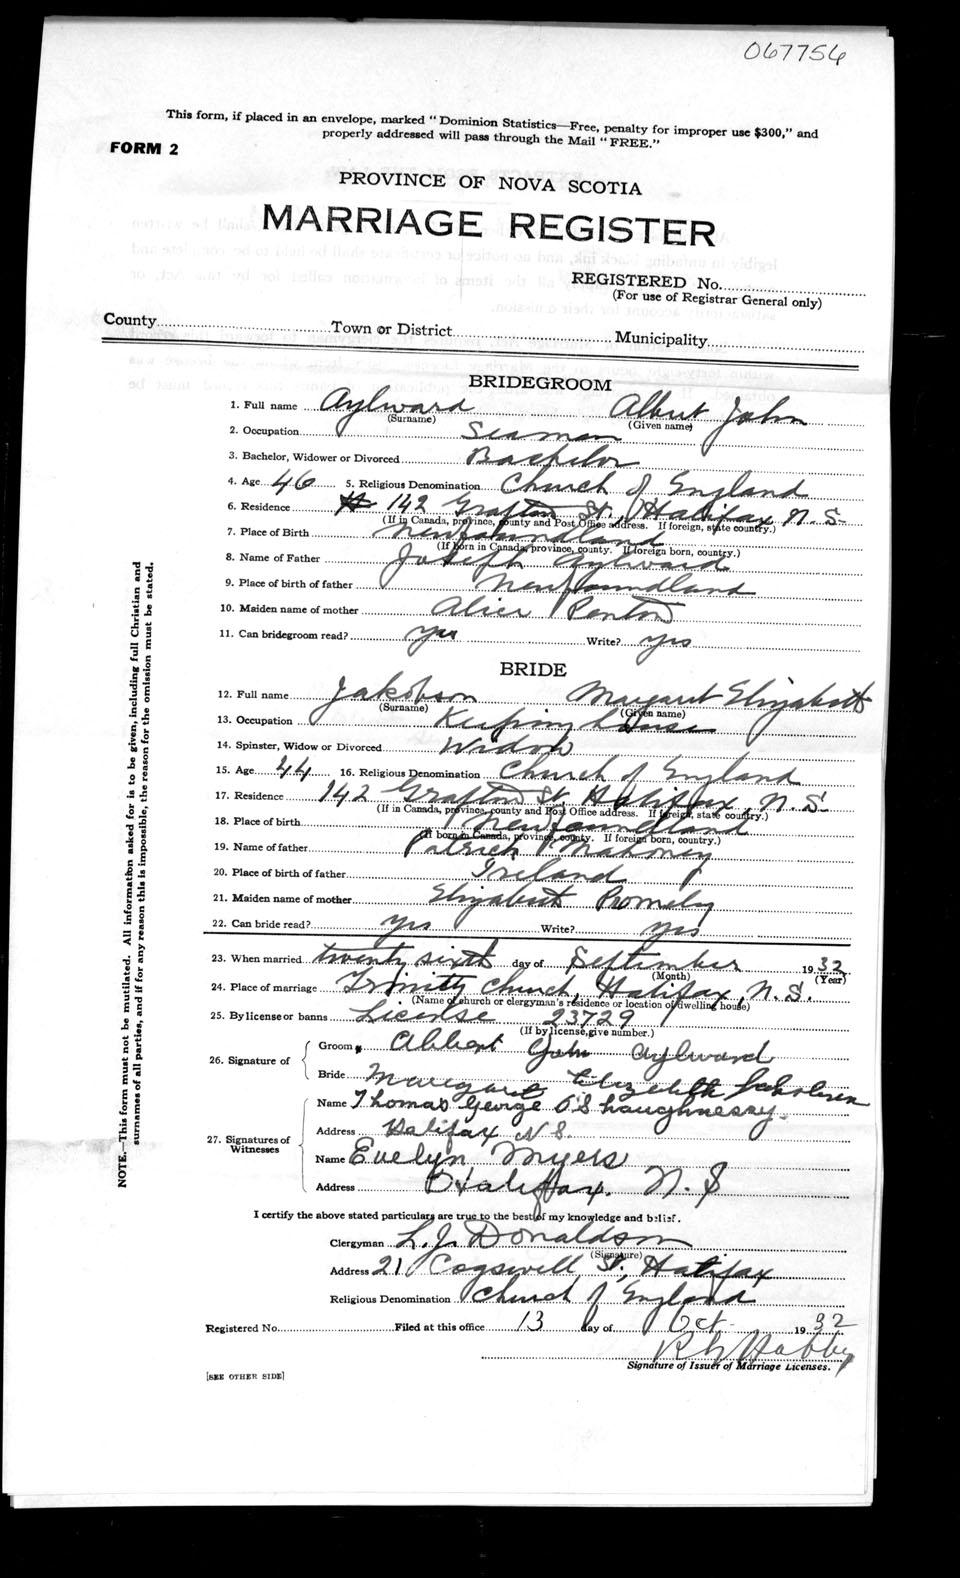 067756
This form, if placed in an envelope, marked "Dominion Statistics—Free, penalty for improper use $300," and
properly addressed will pass through the Mail "FREE."
FORM 2
PROVINCE OF NOVA SCOTIA
MARRIAGE REGISTER
REGISTERED No.
(For use of Registrar General only)
County Town or District Municipality
BRIDEGROOM
1. Full name Aylward Albert John
(Surname) (Given name)
2. Occupation Seaman
3. Bachelor, Widower or Divorced Bachelor
4. Age 46 5. Religious Denomination Church of England
6. Residence 142 Grafton St., Halifax N.S.
(If in Canada, province, county and Post Office address. If foreign, state country.)
7. Place of Birth Newfoundland
(If born in Canada, province, county. If foreign born, country.)
8. Name of Father Joseph Aylward
9. Place of birth of father Newfoundland
10. Maiden name of mother Alice Penton
11. Can bridegroom read? yes Write? yes
BRIDE
12. Full name Jakobson Margaret Elizabeth
(Surname) (Given name)
13. Occupation Keeping house
14. Spinster, Widow or Divorced Widow
15. Age 44 16. Religious Denomination Church of England
17. Residence 142 Grafton St. Halifax, N.S.
(If in Canada, province, county and Post Office address. If foreign, state country.)
18. Place of birth Newfoundland
(If born in Canada, province, county. If foreign born, country.)
19. Name of father Patrick Mahoney
20. Place of birth of father Ireland
21. Maiden name of mother Elizabeth
22. Can bride read? yes Write? yes
23. When married twenty sixth day of September 1932
(Month) (Year)
24. Place of marriage Trinity Church, Halifax, N.S.
(Name of church or clergyman's residence or location of dwelling house)
25. By license or banns License 23729
(If by license, give number.)
26. Signature of Groom Albert John Aylward
Bride Margaret Elizabeth
27. Signatures of Witnesses Name Thomas George O'Shaughnessy
Address Halifax N.S.
Name Evelyn Myers
Address Halifax. N.S
I certify the above stated particulars are true to the best of my knowledge and belief.
Clergyman L. J. Donaldson
(Signature)
Address 21 Cogswell St, Halifax
Religious Denomination Church of England
Registered No. Filed at this office 13 day of Oct 1932
Signature of Issuer of Marriage Licenses.
[SEE OTHER SIDE]
NOTE.—This form must not be mutilated. All information asked for is to be given, including full Christian and
surnames of all parties, and if for any reason this is impossible, the reason for the omission must be stated.